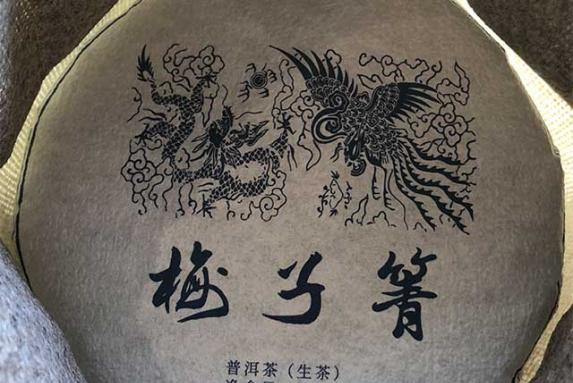 梅子箐
普洱茶（生茶）